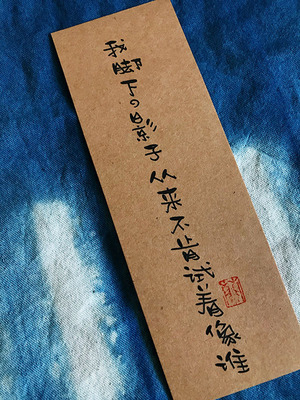 我脚下の影子从来不肯试着像谁